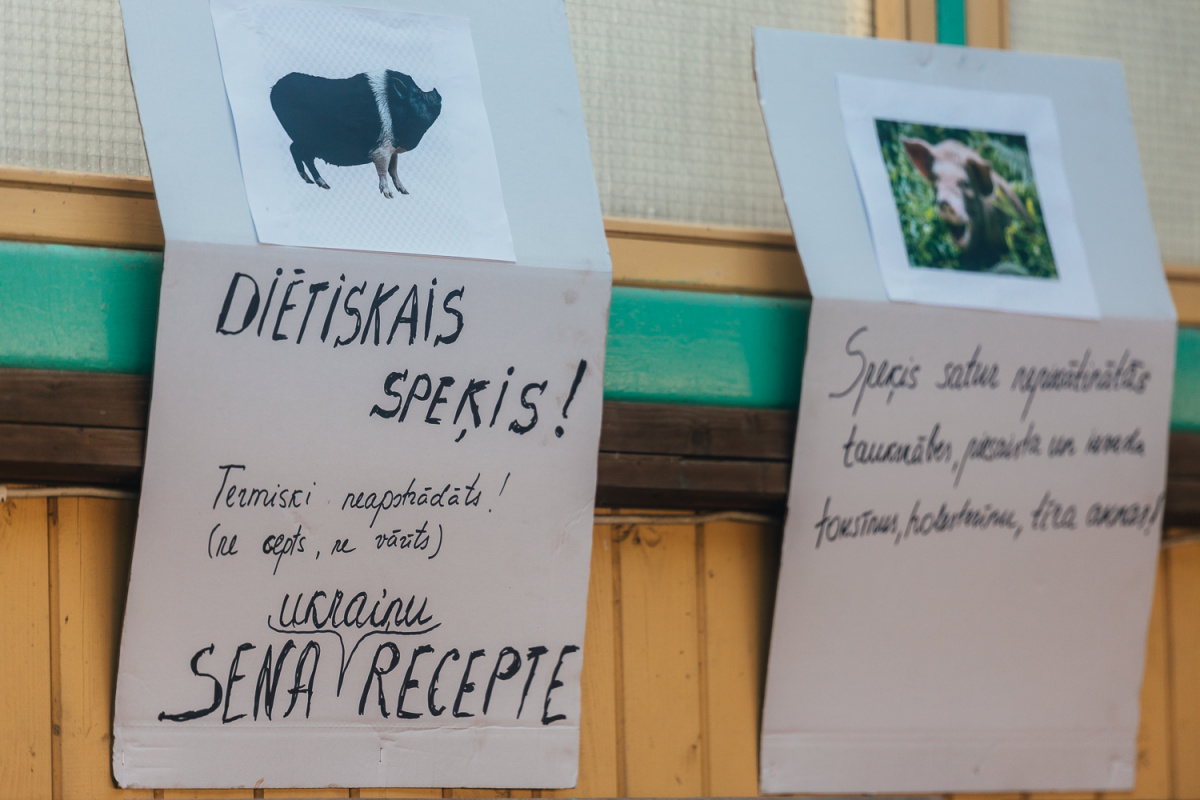 DIĒTISKAIS
SPEĶIS!
Termiski neapstrādāts!
(ne cepts, ne vārīts)
ukraiņu
SENA RECEPTE
Speķis satur nepiesātinātās
taukskābes, piesaista un izvada
toksīnus, holesterīnu, tīra aknas!